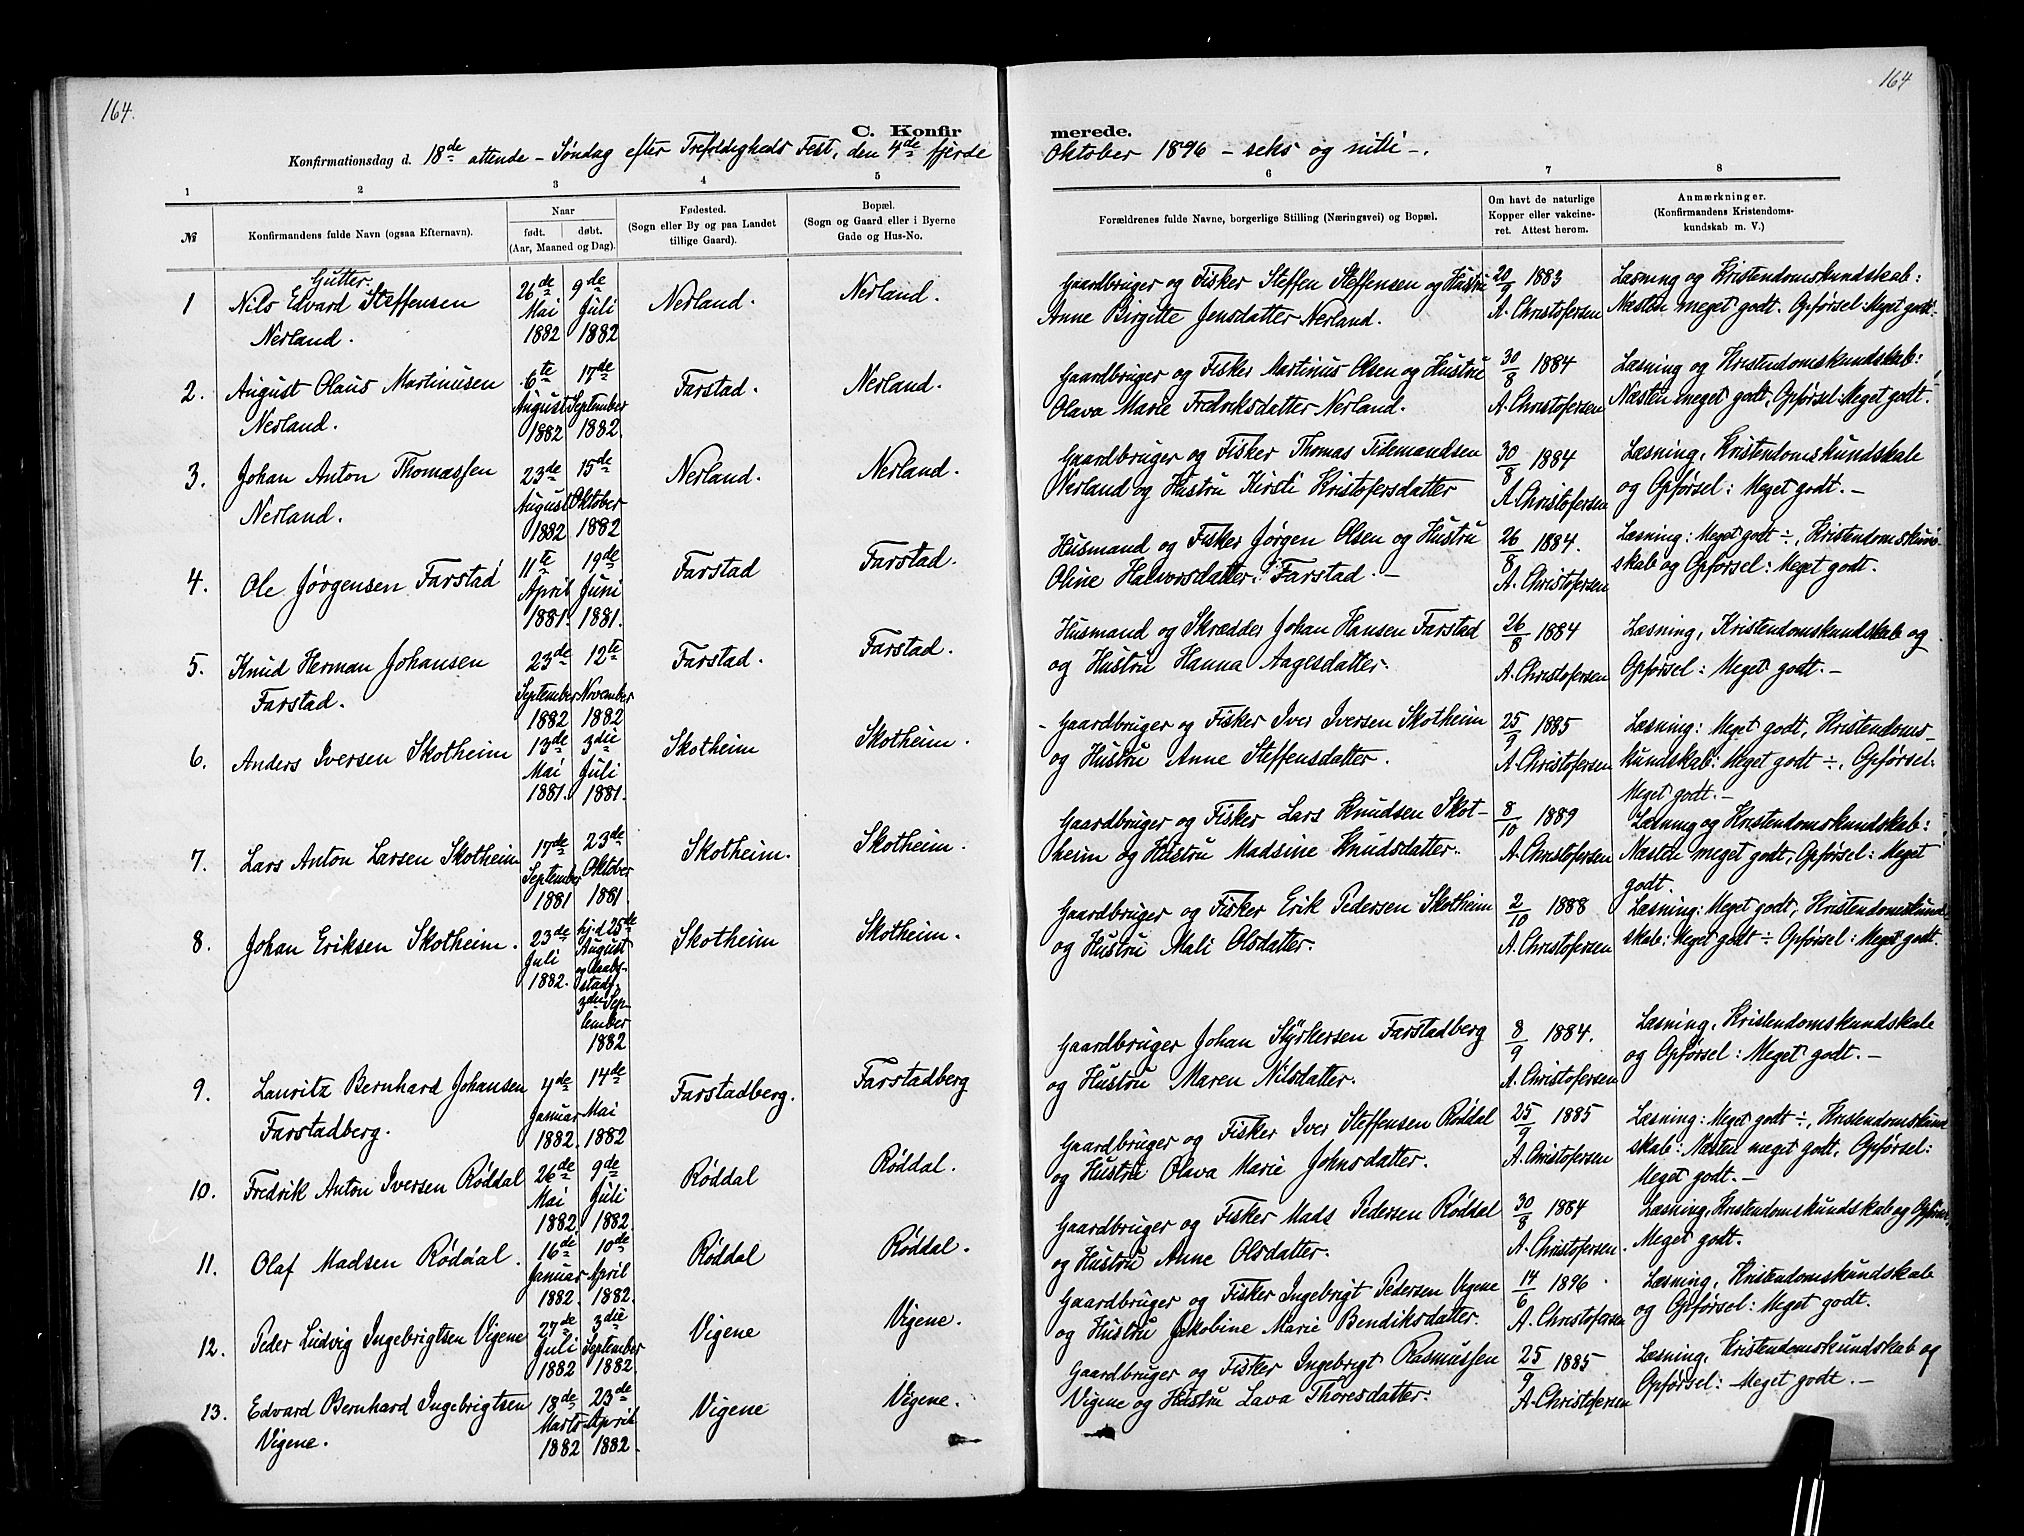 164.
164
C. Konfirmerede.
Konfirmationsdag d. 18de attende – Søndag efter Trefoldigheds Fest, den 4de fjerde Oktober 1896 – seks og nitti –.
1 2 3 4 5 6 7 8
№
Konfirmandens fulde Navn (ogsaa Efternavn).
Naar
født. døbt.
(Aar, Maaned og Dag).
Fødested.
(Sogn eller By og paa Landet
tillige Gaard).
Bopæl.
(Sogn og Gaard eller i Byerne
Gade og Hus-No.
Forældrenes fulde Navne, borgerlige Stilling (Næringsvei) og Bopæl.
Om havt de naturlige
Kopper eller vakcine-
ret. Attest herom.
Anmærkninger.
(Konfirmandens Kristendoms-
kundskab m. V.)
Gutter.
1 Nils Edvard Steffensen
Nerland.
26de Mai 1882
9de Juli 1882
Nerland.
Nerland.
Gaardbruger og Fisker Steffen Steffensen og Hustru
Anne Birgitte Jensdatter Nerland.
20/9 1883
A. Christofersen
Læsning og Kristendomskundskab:
Næsten meget godt. Opførsel: Meget godt.
2. August Olaus Martinusen
Nerland.
6te August 1882
17de September 1882.
Farstad.
Nerland.
Gaardbruger og Fisker Martinus Olsen og Hustru
Olava Marie Fredriksdatter Nerland.
30/8 1884
A. Christofersen
Læsning og Kristendomskundskab:
Næsten meget godt, Opførsel: Meget godt.
3. Johan Anton Thomassen
Nerland.
23de August 1882
15de Oktober 1882
Nerland.
Nerland.
Gaardbruger og Fisker Thomas Tidemandsen
Nerland og Hustru Kirsti Kristofersdatter
30/8 1884
A. Christofersen
Læsning, Kristendomskundskab
og Opførsel: Meget godt. –
4. Ole Jørgensen Farstad
11te April 1881.
19de Juni 1881.
Farstad
Farstad.
Husmand og Fisker Jørgen Olsen og Hustru
Oline Halvorsdatter Farstad. –
26/8 1884.
A. Christofersen
Læsning: Meget godt ÷, Kristendomskund-
skab og Opførsel: Meget godt.
5. Knud Herman Johansen
Farstad.
23de September 1882
12te November 1882
Farstad.
Farstad.
Husmand og Skrædder Johan Hansen Farstad
og Hustru Hanna Aagesdatter.
26/8 1884
A. Christofersen
Læsning, Kristendomskundskab og
Opførsel: Meget godt. –
6. Anders Iversen Skotheim
13de Mai 1881.
3die Juli 1881.
Skotheim
Skotheim.
Gaardbruger og Fisker Iver Iversen Skotheim
og Hustru Anne Steffensdatter.
25/9 1885
A. Christofersen
Læsning: Meget godt, Kristendoms-
kundskab: Meget godt ÷, Opførsel:
Meget godt. –
7. Lars Anton Larsen Skotheim
17de September 1881
23de Oktober 1881.
Skotheim.
Skotheim.
Gaardbruger og Fisker Lars Knudsen Skot-
heim og Hustru Madsine Knudsdatter.
8/10 1889
A. Christofersen
Læsning og Kristendomskundskab:
Næsten meget godt, Opførsel: Meget
godt.
8. Johan Eriksen Skotheim.
23de Juli 1882.
hj.d. 25de August og Daabs- stadf. 3die Sep- tember 1882
Skotheim
Skotheim.
Gaardbruger og Fisker Erik Pedersen Skotheim
og Hustru Mali Olsdatter.
2/10 1888
A. Christofersen
Læsning: Meget godt, Kristendomskund-
skab: Meget godt ÷ Opførsel: Meget godt.
9. Lauritz Bernhard Johansen
Farstadberg.
4de Januar 1882.
14de Mai 1882
Farstadberg.
Farstadberg
Gaardbruger Johan Styrkersen Farstadberg
og Hustru Maren Nilsdatter.
8/9 1884.
A. Christofersen
Læsning, Kristendomskundskab
og Opførsel: Meget godt. –
10. Fredrik Anton Iversen Røddal
26de Mai 1882
9de Juli 1882.
Røddal
Røddal.
Gaardbruger og Fisker Iver Steffensen Røddal
og Hustru Olava Marie Johnsdatter.
25/9 1885
A. Christofersen
Læsning: Meget godt ÷, Kristendomskund
skab: Næsten meget godt, Opførsel:
Meget godt. –
11. Olaf Madsen Røddal.
16de Januar 1882.
10de April 1882.
Røddal
Røddal.
Gaardbruger og Fisker Mads Pedersen Røddal
og Hustru Anne Olsdatter.
30/8 1884
A. Christofersen.
Læsning, Kristendomskundskab og Opførsel
Meget godt.
12. Peder Ludvig Ingebrigtsen Vigene
27de Juli 1882
3die September 1882.
Vigene
Vigene.
Gaardbruger og Fisker Ingebrigt Pedersen Vigene
og Hustru Jakobine Marie Bendiksdatter.
14/6 1896
A. Christofersen
Læsning, Kristendomskundskab
og Opførsel: Meget godt.
13. Edvard Bernhard Ingebrigtsen
Vigene.
18de Marts 1882
23de April 1882.
Vigene
Vigene.
Gaardbruger og Fisker Ingebrigt Rasmussen
Vigene og Hustru Lava Thoresdatter.
25/9 1885
A. Christofersen
Læsning, Kristendomskundskab og
Opførsel: Meget godt. –